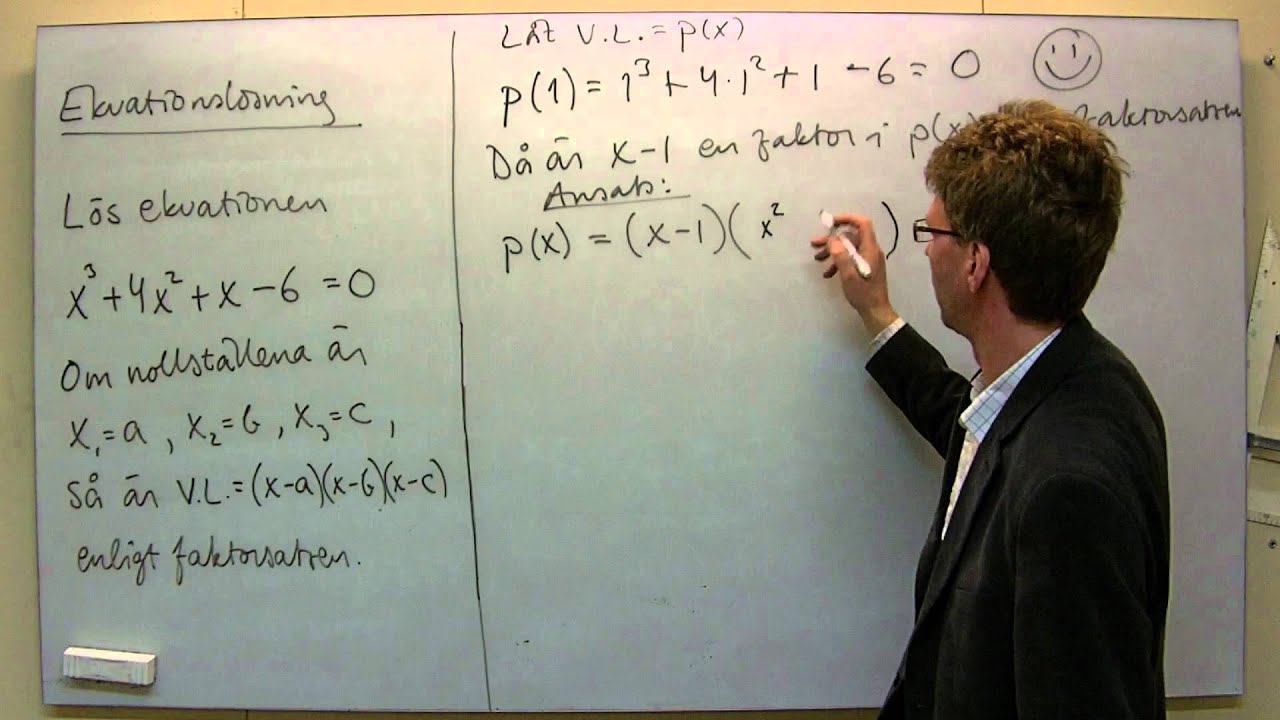 Ekvationslösning
Lös ekvationen
x³+4x²+x-6=0
Om nollställena är
x₁=a, x₂=b, x₃=c,
så är V.L.=(x-a)(x-b)(x-c)
enligt faktorsatsen.
Låt V.L.=p(x)
p(1)=1³+4·1²+1-6=0
Då är x-1 en faktor i p(x) faktorsatsen
Ansats:
p(x)=(x-1)(x² )